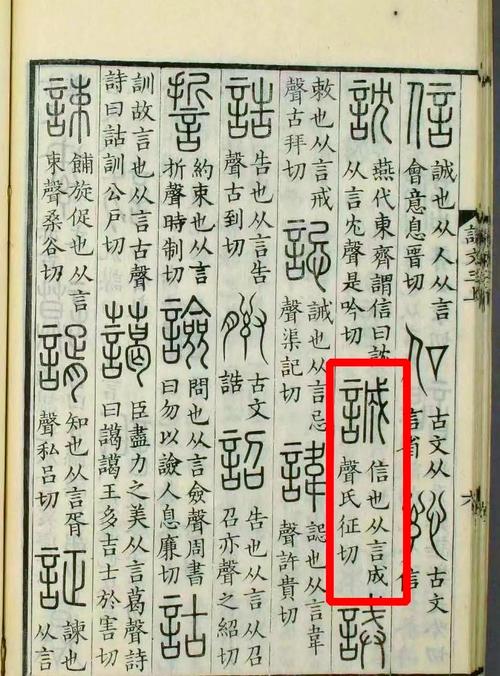 信
誠也从人从言
會意息晉切
㐰
古文从
言省
訫
古文
信
訦
燕代東齊謂信曰訦
从言冘聲是吟切
誠
信也从言成
聲氏征切
誡
敕也从言戒
聲古拜切
誋
誡也从言忌
聲渠記切
諱
誋也从言韋
聲許貴切
誥
告也从言告
聲古到切
古文
誥
詔
告也从言从召
召亦聲之紹切
誓
約束也从言
折聲時制切
譣
問也从言僉聲周書
曰勿以譣人息廉切
詁
訓故言也从言古聲
詩曰詁訓公戶切
藹
臣盡力之美从言葛聲詩
曰藹藹王多吉士於害切
誎
餔旋促也从言
束聲桑谷切
諝
知也从言胥
聲私呂切
証
諫也
从言